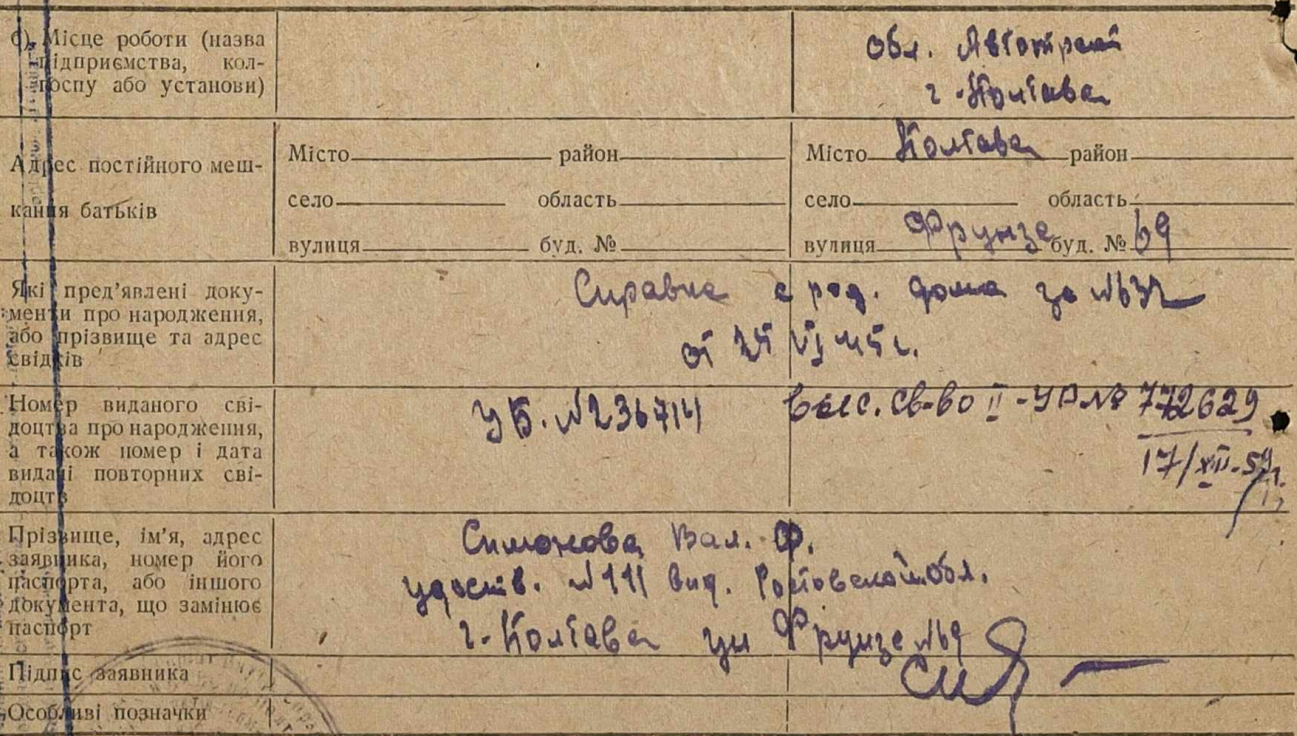 б) Місце роботи (назва
підприємства, кол-
госпу або установи)
Обл. Автотрест
г. Полтава
Адрес постійного меш-
кання батьків
Місто район
село область
вулиця буд. №
Місто Полтава район
село область
вулиця Фрунзе буд. № 69
Які пред'явлені доку-
менти про народження,
або прізвище та адрес
свідків
Справка с род. дома за №632
от VI 45 г.
Номер виданого сві-
доцтва про народження,
а також номер і дата
видачі повторних сві-
доцтв
УБ. №236714
выс. св-во II-УР № 772629
17/XII-59 г.
Прізвище, ім'я, адрес
заявника, номер його
паспорта, або іншого
документа, що замінює
паспорт
Симонова Вал. Ф.
удоств. №111 выд. Ростовской обл.
г. Полтава ул Фрунзе №69
Підпис заявника
Особливі позначки